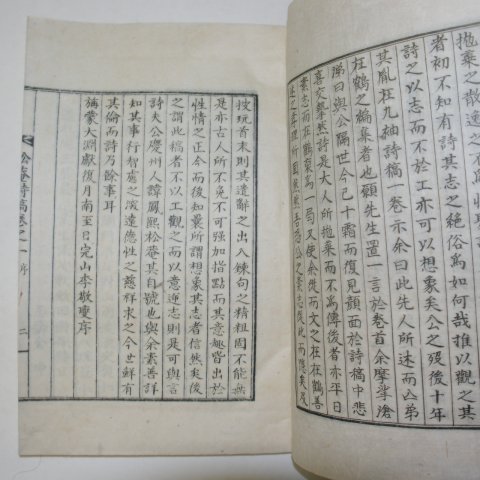 拖棄之散逸矣公之
者初不知有詩其志之絶俗爲如何哉推以觀之其
詩之以志而不於工亦可以想象矣公之歿後十年
其胤在九袖詩稿一卷示余曰此先人所述而亡弟
在鶴之編集者也願先生置一言於卷首余摩挲滄
涕曰與公隔世今已十霜而復見顔面於詩稿中悲
喜交摯然詩是大人所拖棄而不爲傳後者亦平日
素志而在鶴裒爲一局又使余從而文之在在鶴善
技玩首末則其遣辭之出入鍊句之精粗固不能無
是亦古人所不免不可強加指點而其意想皆出於
性情之正今而後知曩所謂想象其志者信然矣後
之謂此稿者不以工觀之而以意逆志則是可與言
詩夫公慶州人諱鳳熙松庵其自號也與余素善詳
知其事行智慮之濃遠德性之慈祥求之今世鮮有
其倫而詩乃餘事耳
旃蒙大淵獻復月南至日完山李敬夏序
松庵詩稿卷之一 序 二